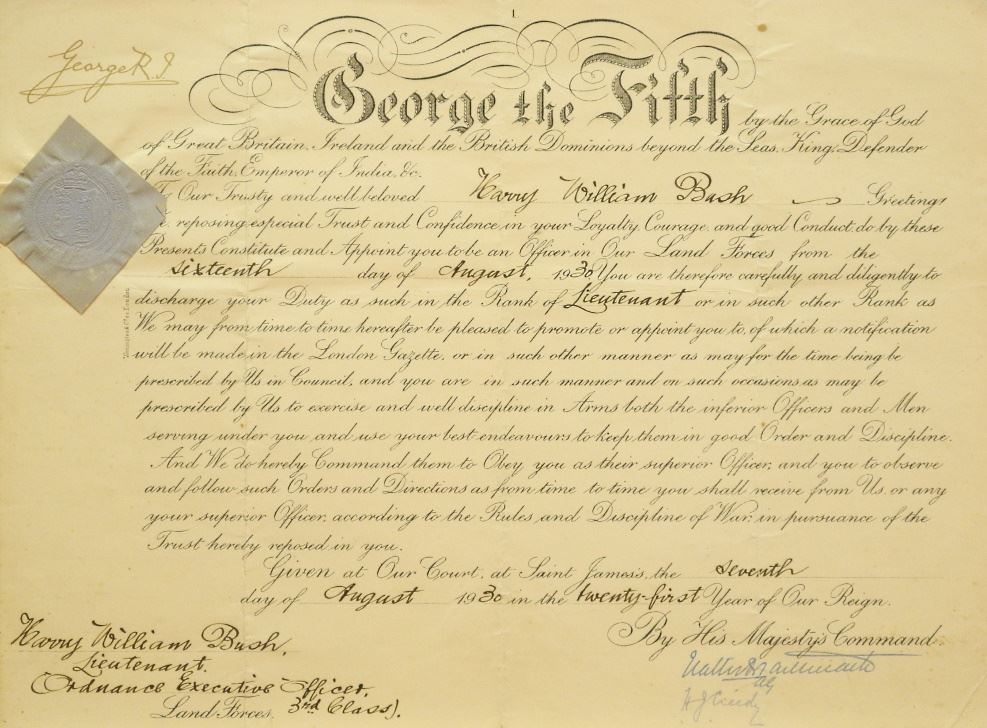 1.
George R.I.
George the Fifth by the Grace of God
of Great Britain, Ireland and the British Dominions beyond the Seas, King, Defender
of the Faith, Emperor of India, &c.
To Our Trusty and well beloved Harry William Bush Greeting,
reposing especial Trust and Confidence in your Loyalty, Courage, and good Conduct, do by these
Presents Constitute and Appoint you to be an Officer in Our Land Forces from the
sixteenth day of August, 1930 You are therefore carefully and diligently to
discharge your Duty as such in the Rank of Lieutenant or in such other Rank as
We may from time to time hereafter be pleased to promote or appoint you to, of which a notification
will be made in the London Gazette, or in such other manner as may for the time being be
prescribed by Us in Council, and you are in such manner and on such occasions as may be
prescribed by Us to exercise and well discipline in Arms both the inferior Officers and Men
serving under you and use your best endeavours to keep them in good Order and Discipline.
And We do hereby Command them to Obey you as their superior Officer, and you to observe
and follow such Orders and Directions as from time to time you shall receive from Us, or any
your superior Officer, according to the Rules and Discipline of War, in pursuance of the
Trust hereby reposed in you.
Given at Our Court, at Saint James's, the seventh
day of August 1930 in the twenty-first Year of Our Reign.
By His Majesty's Command.
Harry William Bush.
Lieutenant.
Ordnance Executive Officer,
Land Forces, 3rd Class).